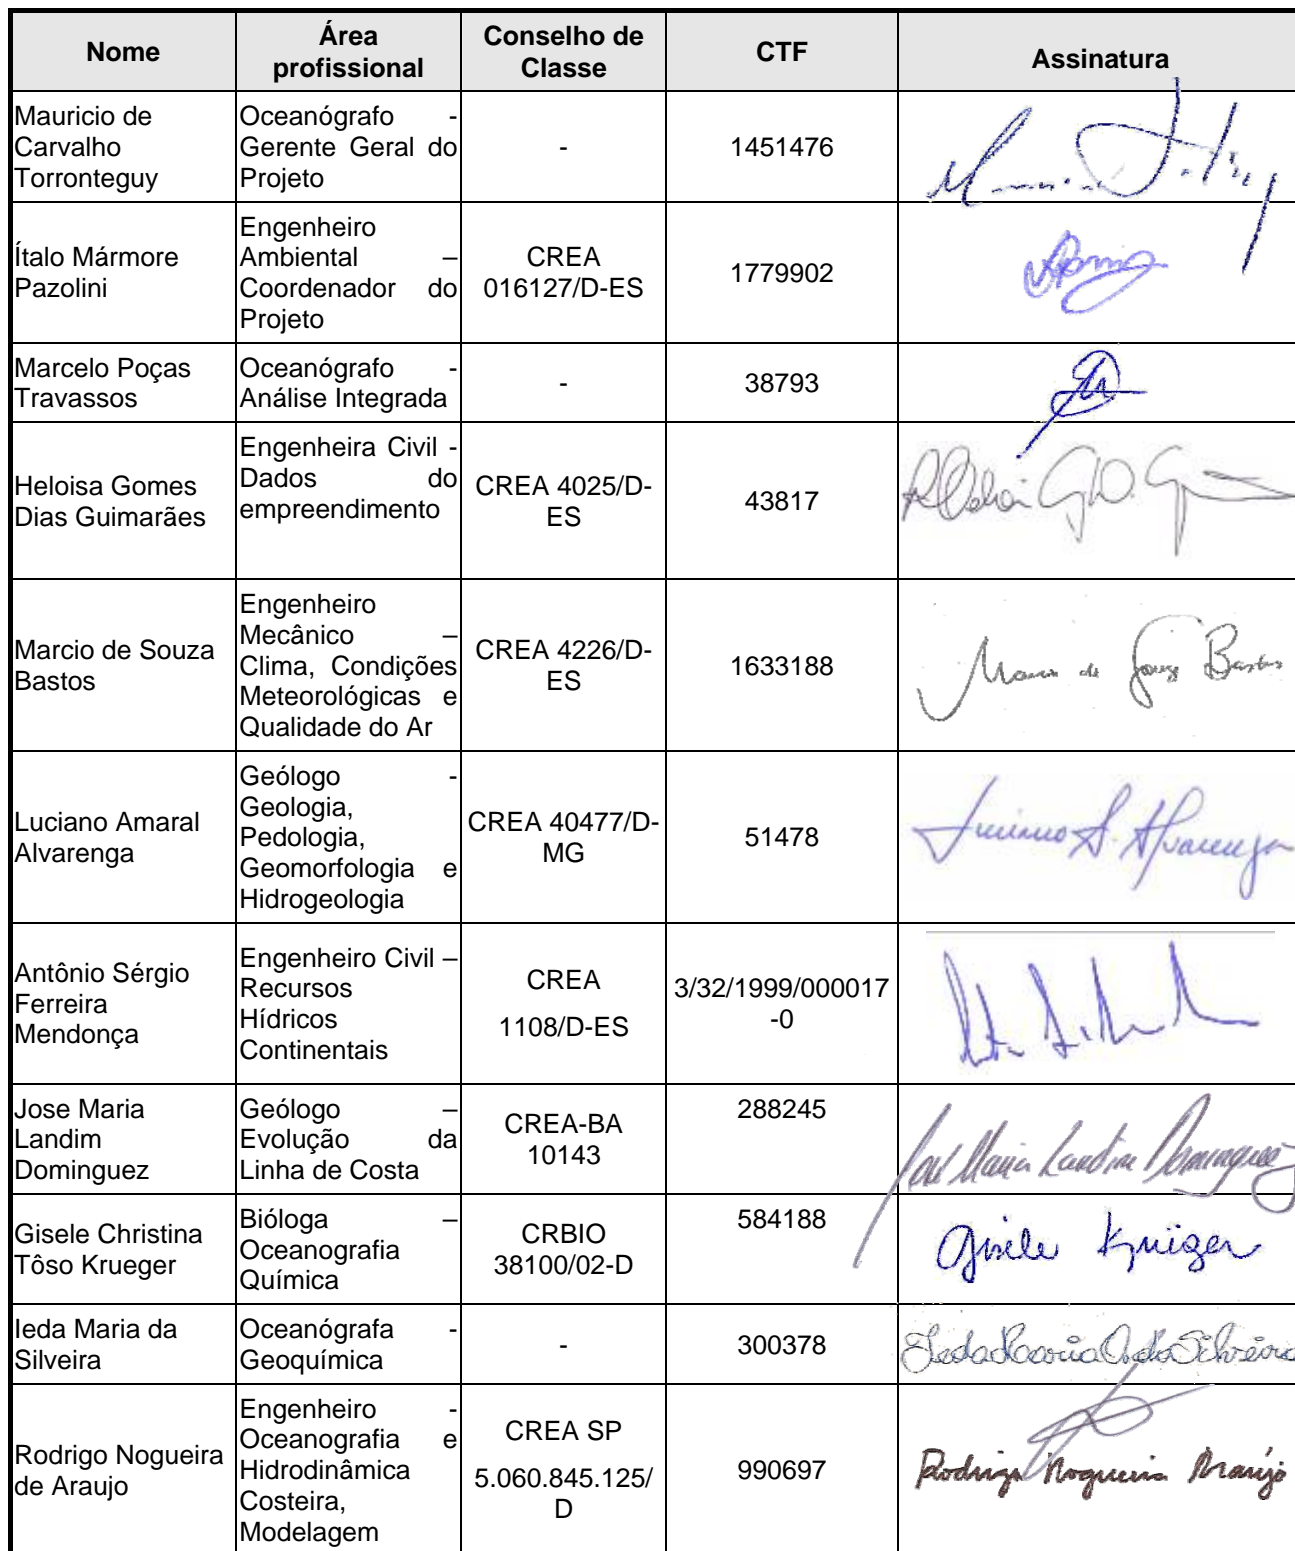 Nome
Área profissional
Conselho de Classe
CTF
Assinatura
Mauricio de
Carvalho
Torronteguy
Oceanógrafo -
Gerente Geral do
Projeto
-
1451476
Ítalo Mármore
Pazolini
Engenheiro
Ambiental –
Coordenador do
Projeto
CREA
016127/D-ES
1779902
Marcelo Poças
Travassos
Oceanógrafo -
Análise Integrada
-
38793
Heloisa Gomes
Dias Guimarães
Engenheira Civil -
Dados do
empreendimento
CREA 4025/D-
ES
43817
Marcio de Souza
Bastos
Engenheiro
Mecânico –
Clima, Condições
Meteorológicas e
Qualidade do Ar
CREA 4226/D-
ES
1633188
Marcio de Souza Bastos
Luciano Amaral
Alvarenga
Geólogo -
Geologia,
Pedologia,
Geomorfologia e
Hidrogeologia
CREA 40477/D-
MG
51478
Luciano A. Alvarenga
Antônio Sérgio
Ferreira
Mendonça
Engenheiro Civil –
Recursos
Hídricos
Continentais
CREA
1108/D-ES
3/32/1999/000017
-0
Jose Maria
Landim
Dominguez
Geólogo –
Evolução da
Linha de Costa
CREA-BA
10143
288245
José Maria Landim Dominguez
Gisele Christina
Tôso Krueger
Bióloga –
Oceanografia
Química
CRBIO
38100/02-D
584188
Gisele Krueger
Ieda Maria da
Silveira
Oceanógrafa -
Geoquímica
-
300378
Ieda Maria O. da Silveira
Rodrigo Nogueira
de Araujo
Engenheiro -
Oceanografia e
Hidrodinâmica
Costeira,
Modelagem
CREA SP
5.060.845.125/
D
990697
Rodrigo Nogueira Araújo